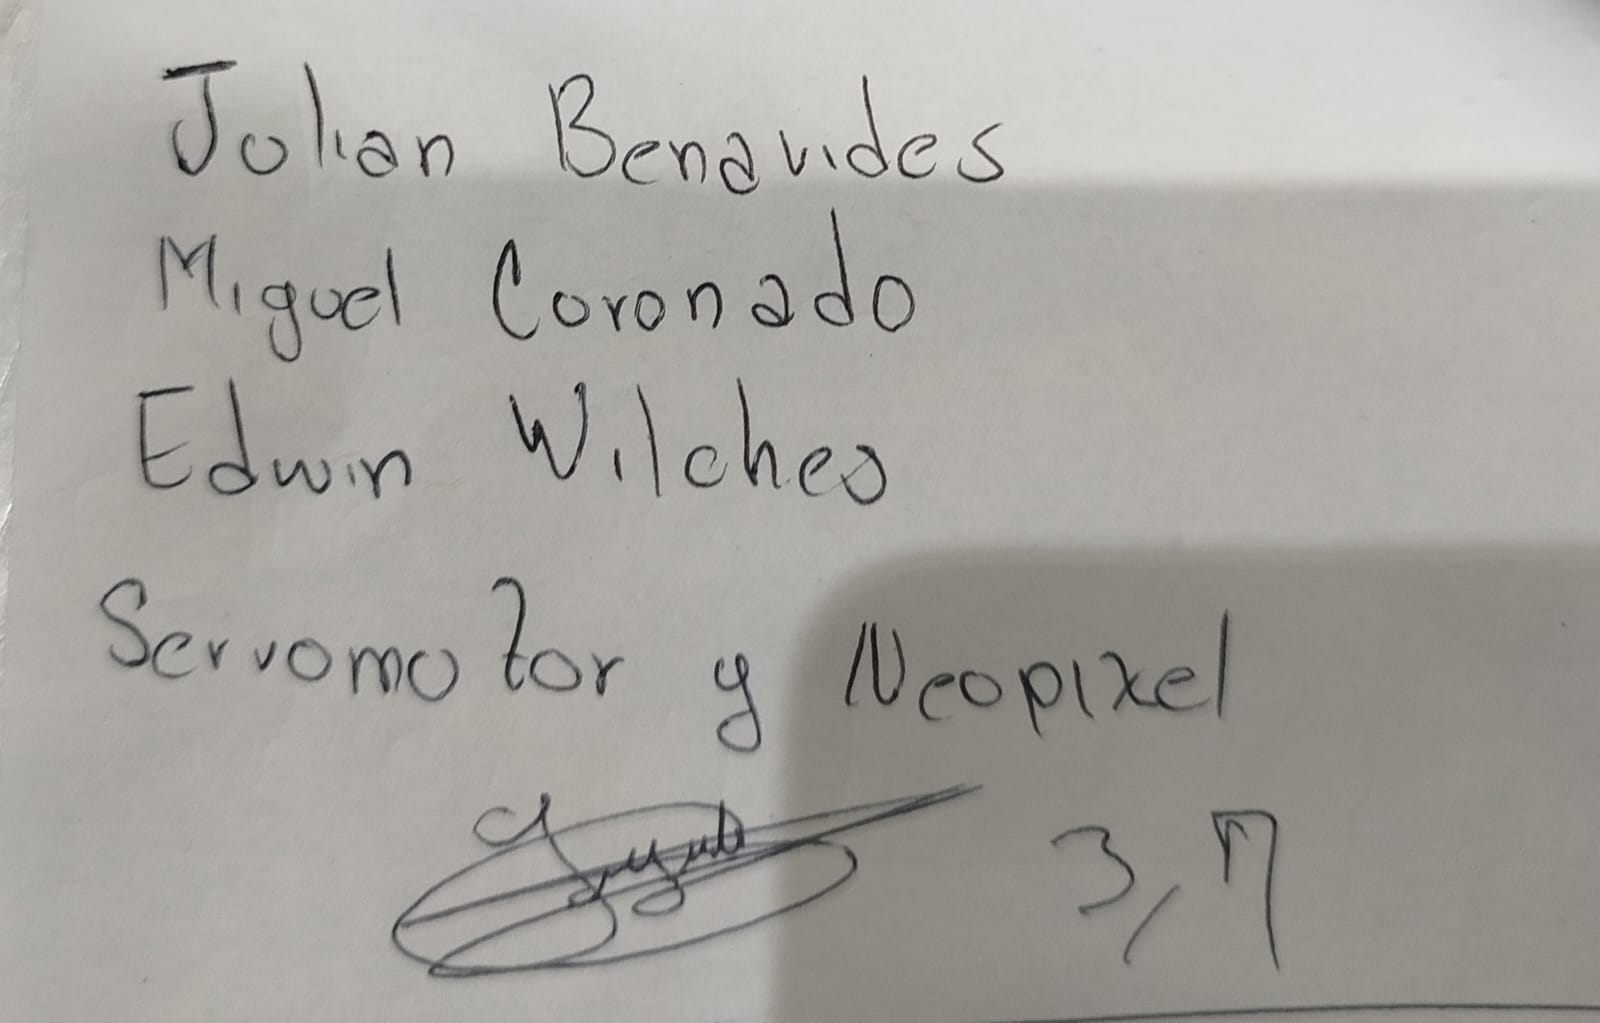 Julian Benavides
Miguel Coronado
Edwin Wilches
Servomotor y Neopixel
3,7